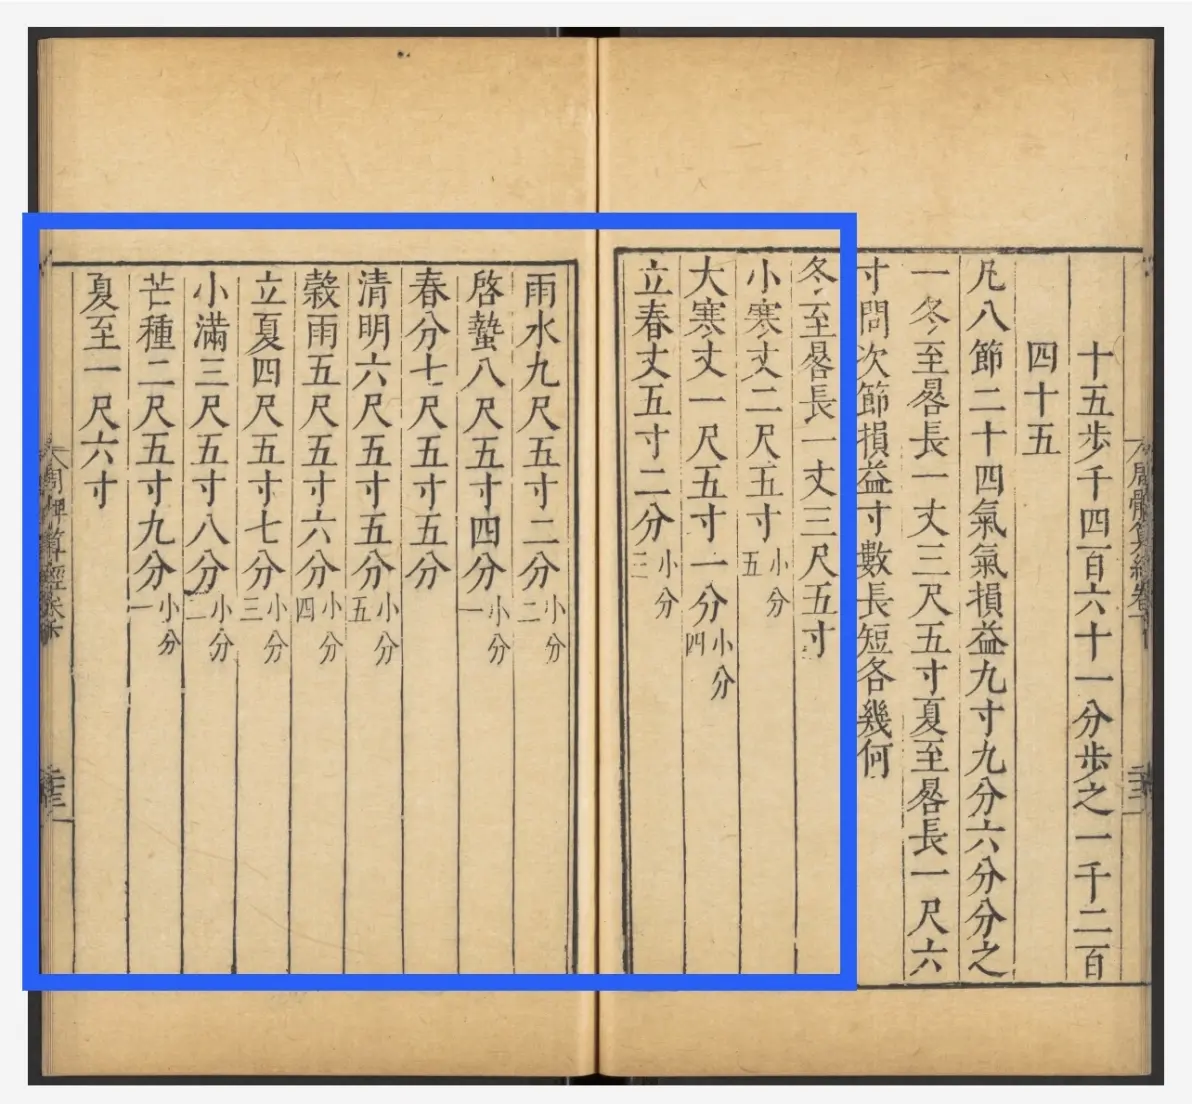 十五歩千四百六十一分歩之一千二百
四十五
凡八節二十四氣氣損益九寸九分六分分之
一冬至晷長一丈三尺五寸夏至晷長一尺六
寸問次節損益寸數長短各幾何
冬至晷長一丈三尺五寸
小寒丈二尺五寸小分五
大寒丈一尺五寸一分小分四
立春丈五寸二分小分三
雨水九尺五寸二分小分二
啓蟄八尺五寸四分小分一
春分七尺五寸五分
清明六尺五寸五分小分五
榖雨五尺五寸六分小分四
立夏四尺五寸七分小分三
小滿三尺五寸八分小分二
芒種二尺五寸九分小分一
夏至一尺六寸